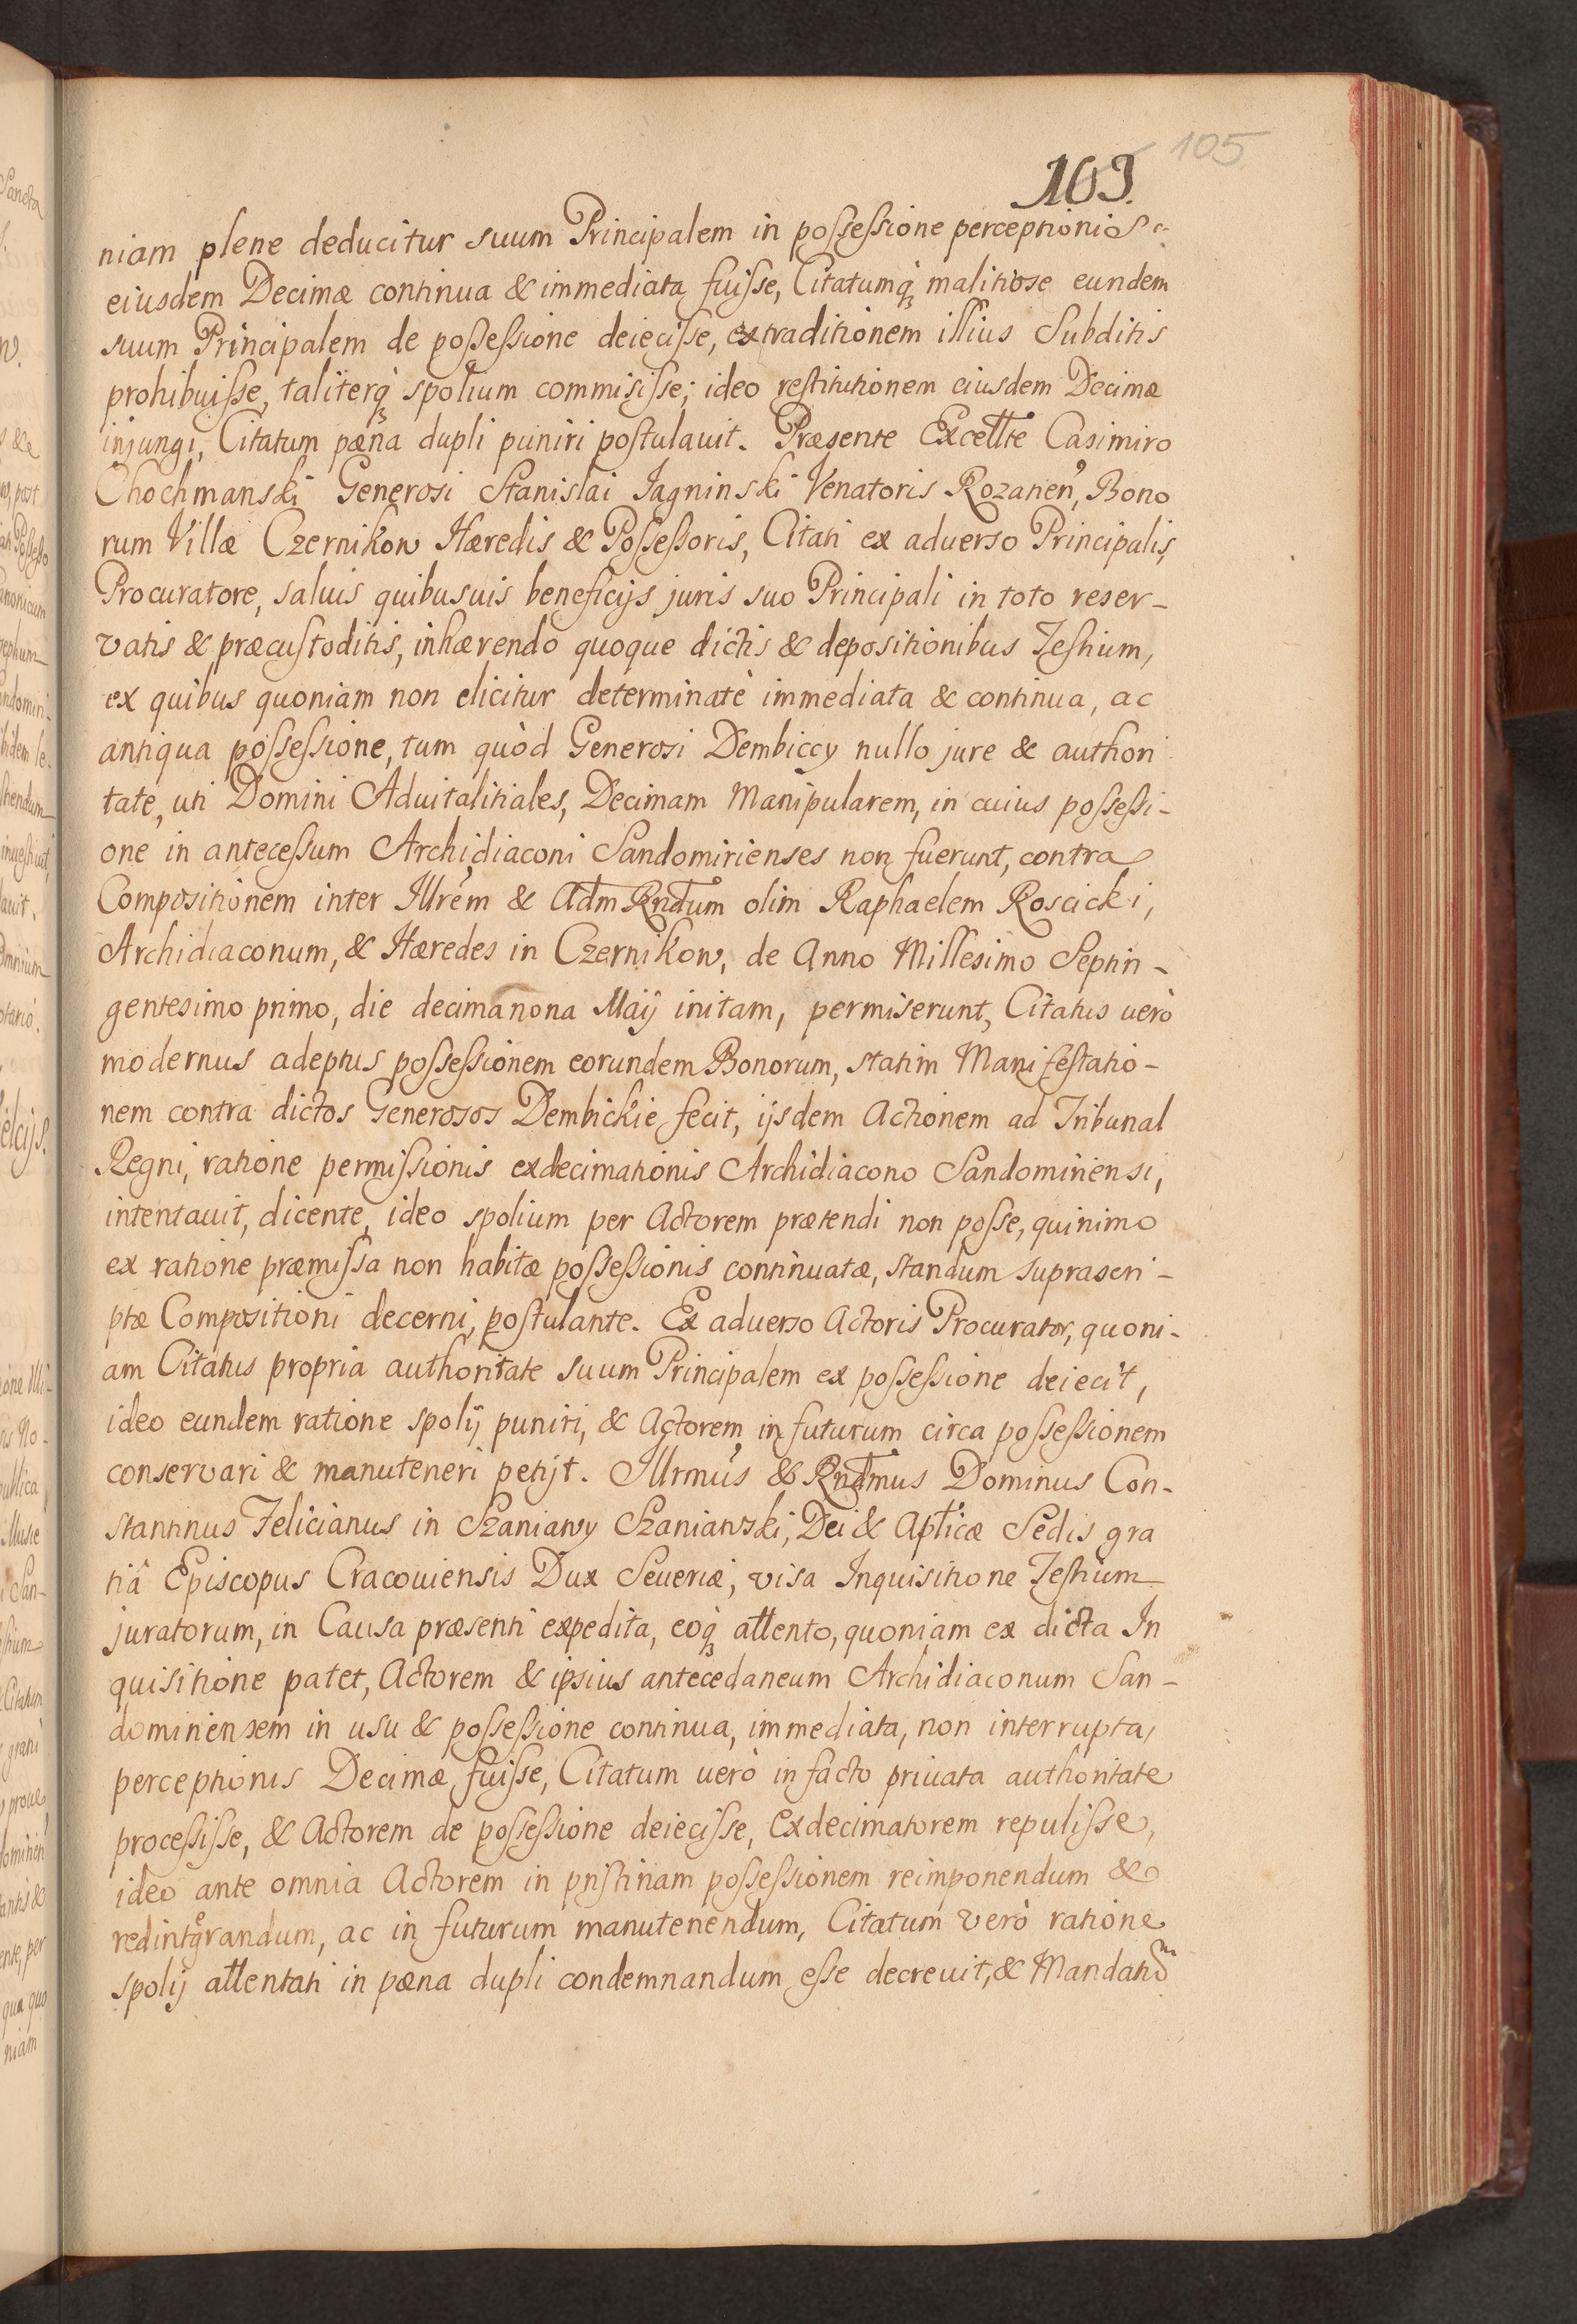 105
103.
niam plene deducitur suum Principalem in possessione perceptionis
eiusdem Decimæ continua & immediata fuisse, Citatumq́ malitiose eundem
suum Principalem de possessione deiecisse, extraditionem illius Subditis
prohibuisse, taliterq́ spolium commisisse; ideo restitutionem eiusdem Decimæ
injungi, Citatum pæna dupli puniri postulauit. Præsente Excellte Casimiro
Chochmanski Generosi Stanislai Jagninski Venatoris Rozanen, Bono
rum Villæ Czernikow Hæredis & Possessoris, Citati ex aduerso Principalis,
Procuratore, saluis quibusuis beneficijs juris suo Principali in toto reser-
vatis & præcustoditis, inhærendo quoque dictis & depositionibus Testium,
ex quibus quoniam non elicitur determinatè immediata & continua, ac
antiqua possessione, tum quòd Generosi Dembiccy nullo jure & authori
tate, uti Domini Aduitalitiales, Decimam Manipularem, in cuius possessi-
one in antecessum Archidiaconi Sandomirienses non fuerunt, contra
Compositionem inter Illrem & Adm Rndum olim Raphaelem Roscicki,
Archidiaconum, & Hæredes in Czernikow, de Anno Millesimo Septin-
gentesimo primo, die decimanona Maÿ initam, permiserunt, Citatus uerò
modernus adeptus possessionem eorundem Bonorum, statim Manifestatio-
nem contra dictos Generosos Dembickie fecit, ijsdem Actionem ad Tribunal
Regni, ratione permissionis exdecimationis Archidiacono Sandomiriensi,
intentauit, dicente, ideo spolium per Actorem prætendi non posse, quinimo
ex ratione præmissa non habitæ possessionis continuatæ, standum suprascri-
ptæ Compositioni decerni, postulante. Ex aduerso Actoris Procurator, quoni-
am Citatus propria authoritate suum Principalem ex possessione deiecit,
ideo eundem ratione spolÿ puniri, & Actorem in futurum circa possessionem
conservari & manuteneri petijt. Illrmus & Rndmus Dominus Con-
stantinus Felicianus in Szaniawy Szaniawski, Dei & Aplicæ Sedis gra
tiâ Episcopus Cracouiensis Dux Seueriæ, visa Inquisitione Testium
juratorum, in Causa præsenti expedita, eoq́ attento, quoniam ex dicta In
quisitione patet, Actorem & ipsius antecedaneum Archidiaconum San-
domiriensem in usu & possessione continua, immediata, non interrupta,
perceptionis Decimæ fuisse, Citatum uerò in facto priuata authoritate
processisse, & Actorem de possessione deiecisse, Exdecimatorem repulisse,
ideo ante omnia Actorem in pristinam possessionem reimponendum &
redintegrandum, ac in futurum manutenendum, Citatum verò ratione
spolÿ attentati in pæna dupli condemnandum esse decreuit, & Mandatum